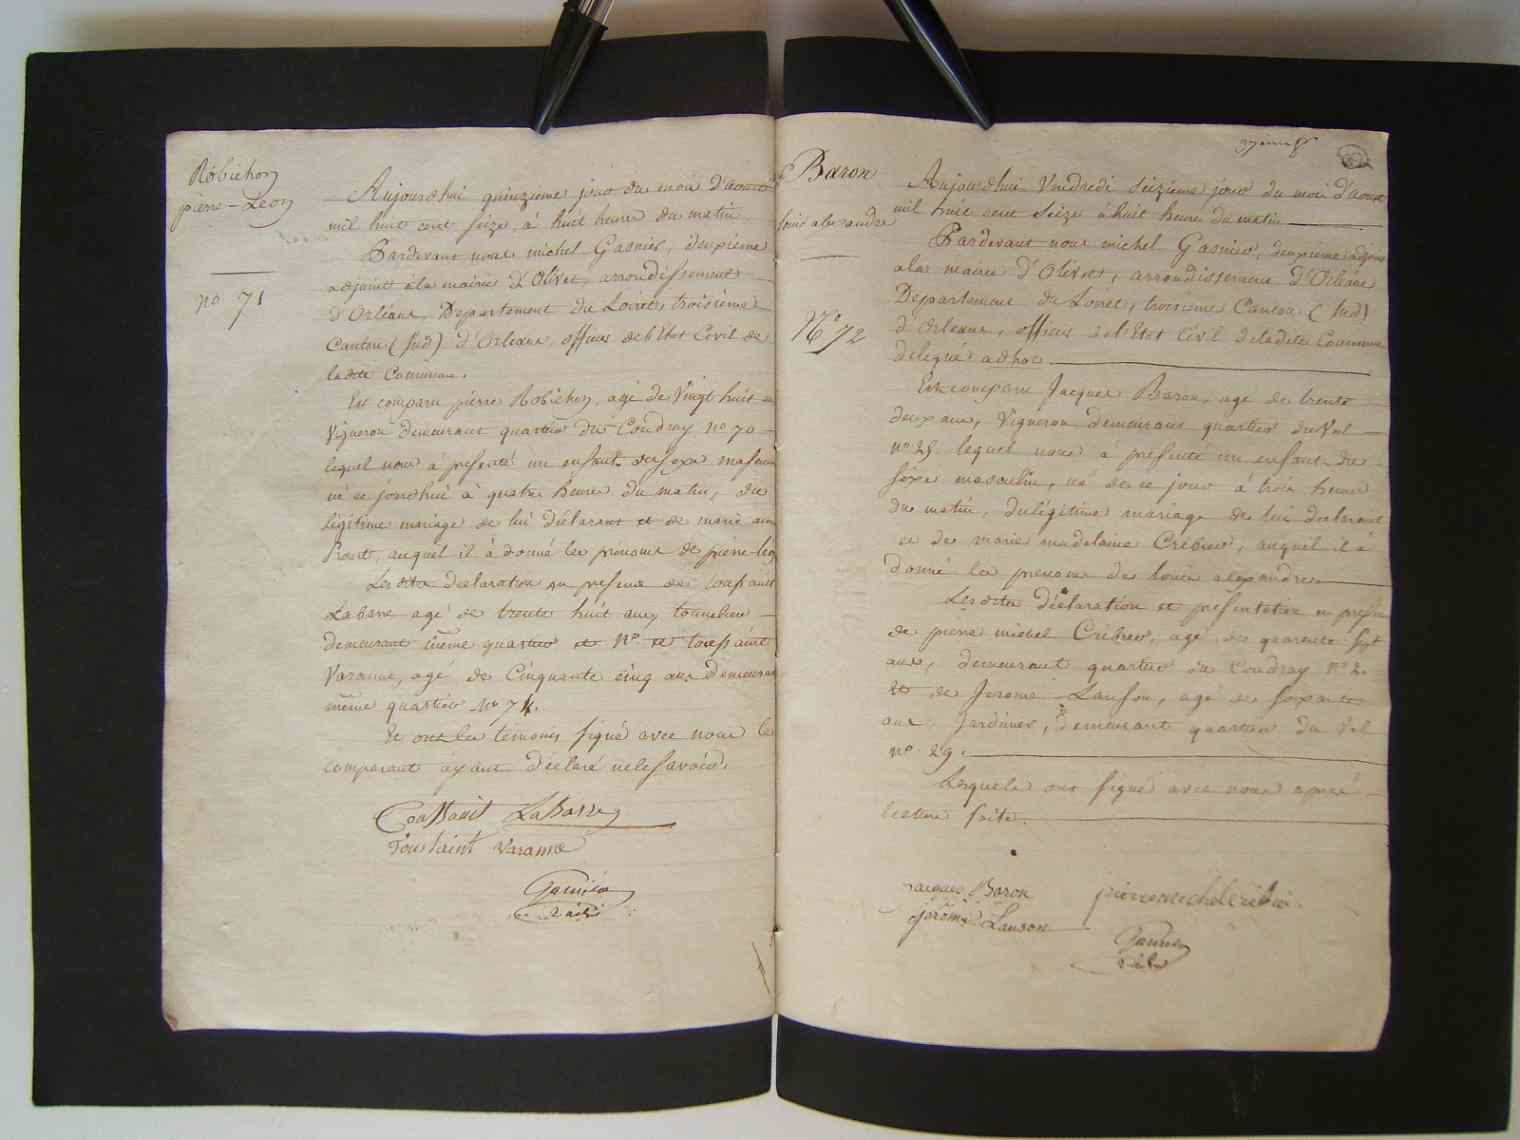 Robichon
pierre-Léon
no 71
Aujourdhui quinzieme jour du mois d'aoust
mil huit cent seize, à huit heures du matin
Pardevant nous michel Gasnier, deuxieme
adjoint à la mairie d'Olivet, arrondissement
d'Orléans, Departement du Loiret, troisieme
Canton (sud) d'Orleans, officier de l'Etat Civil de
la dite Commune.
Est comparu pierre Robichon, agé de Vingt huit
Vigneron demeurant quartier du Coudray no 70
lequel nous à présenté un enfant du sexe masculin
né ce jourdhui à quatre heures du matin, du
légitime mariage de lui déclarant et de marie
auquel il à donné les prénoms de pierre-léon
Les dites declaration en presence de Constant
Labarre agé de trente huit ans, tonnelier
demeurant même quartier et No et toussaint
Varanne, agé de Cinquante cinq ans demeurant
même quartier No 71.
Et ont les témoins signé avec nous le
comparant ayant déclaré ne le savoir.
Constant LaBarre
Toussaint Varanne
Gasnier
Baron
louis alexandre
No 72
Aujourdhui Vendredi seizieme jour du mois d'aoust
mil huit cent seize à huit heures du matin
Pardevant nous michel Gasnier, deuxieme adjoint
a la mairie d'Olivet, arrondissement d'Orléans
Departement du Loiret, troisieme Canton (sud)
d'Orleans, officier de l'Etat Civil de ladite Commune
delegué adhoc
Est comparu Jacques Baron, agé de trente
deux ans, Vigneron demeurant quartier du Val
no 25 lequel nous à présenté un enfant du
sexe masculin, né de ce jour à trois heures
du matin, du légitime mariage de lui declarant
et de marie madelaine Crébier, auquel il à
donné les prenoms de louis alexandre
Les dites déclaration et présentation en presence
de pierre michel Crébier, agé de quarente sept
ans, demeurant quartier du Coudray no 2.
et de Jerome Lanson, agé de soixante
ans, Jardinier, demeurant quartier du Val
no 29.
Lesquels ont signé avec nous après
lecture faite.
Jacques Baron
pierre michel crébier
jérome Lanson
Gasnier